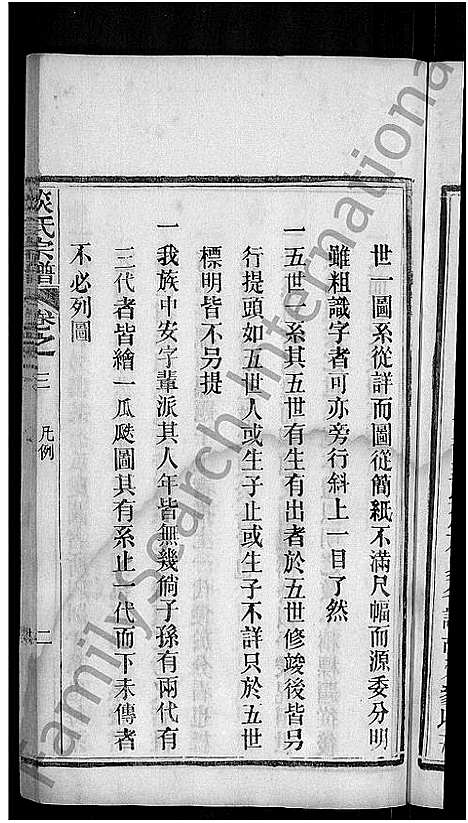 世一圖系從詳而圖從簡紙不滿尺幅而源委分明
雖粗識字者可亦旁行斜上一目了然
一五世一系其五世有生有出者於五世修竣後皆另
行提頭如五世人或生子止或生子不詳只於五世
標明皆不另提
一我族中安字輩派其人年皆無幾倘子孫有兩代有
三代者皆繪一瓜瓞圖其有系止一代而下未傳者
不必列圖
氏宗譜 卷之三 凡例 二
FamilySearch International